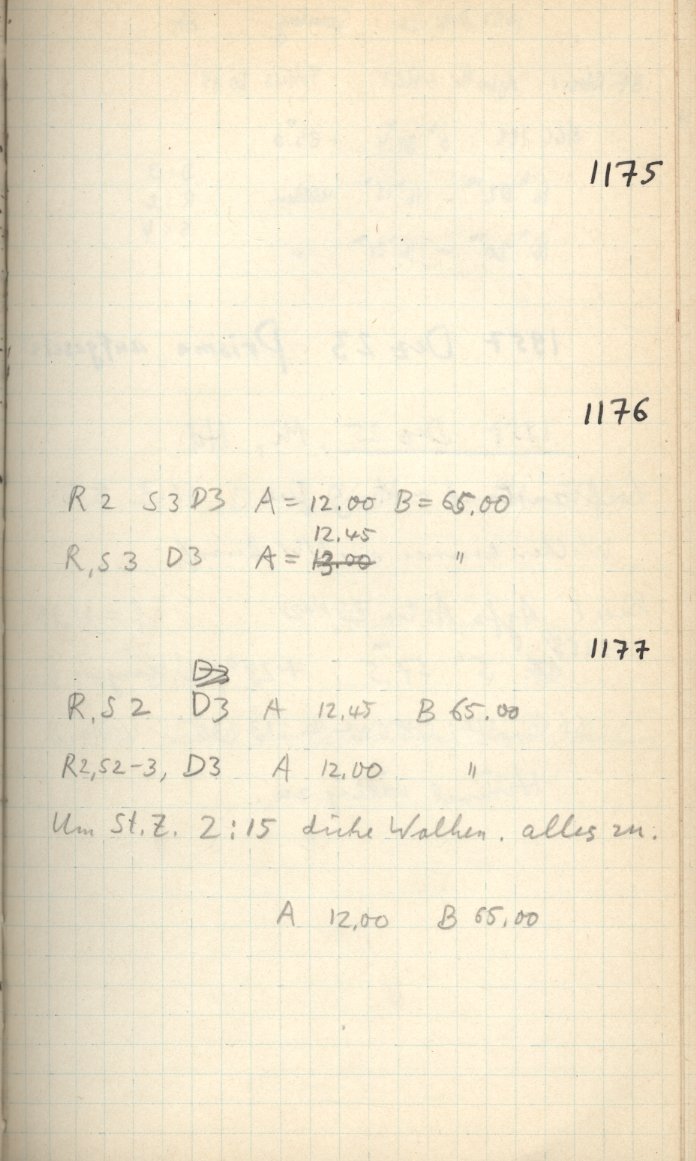 1175
1176
R 2 S 3 D3 A = 12.00 B = 65.00
12.45
R, S 3 D3 A = 13.00 "
1177
D3
R, S 2 D3 A 12.45 B 65.00
R2, S2-3, D3 A 12.00 "
Um St.Z. 2:15 dicke Wolken. alles zu.
A 12,00 B 65,00